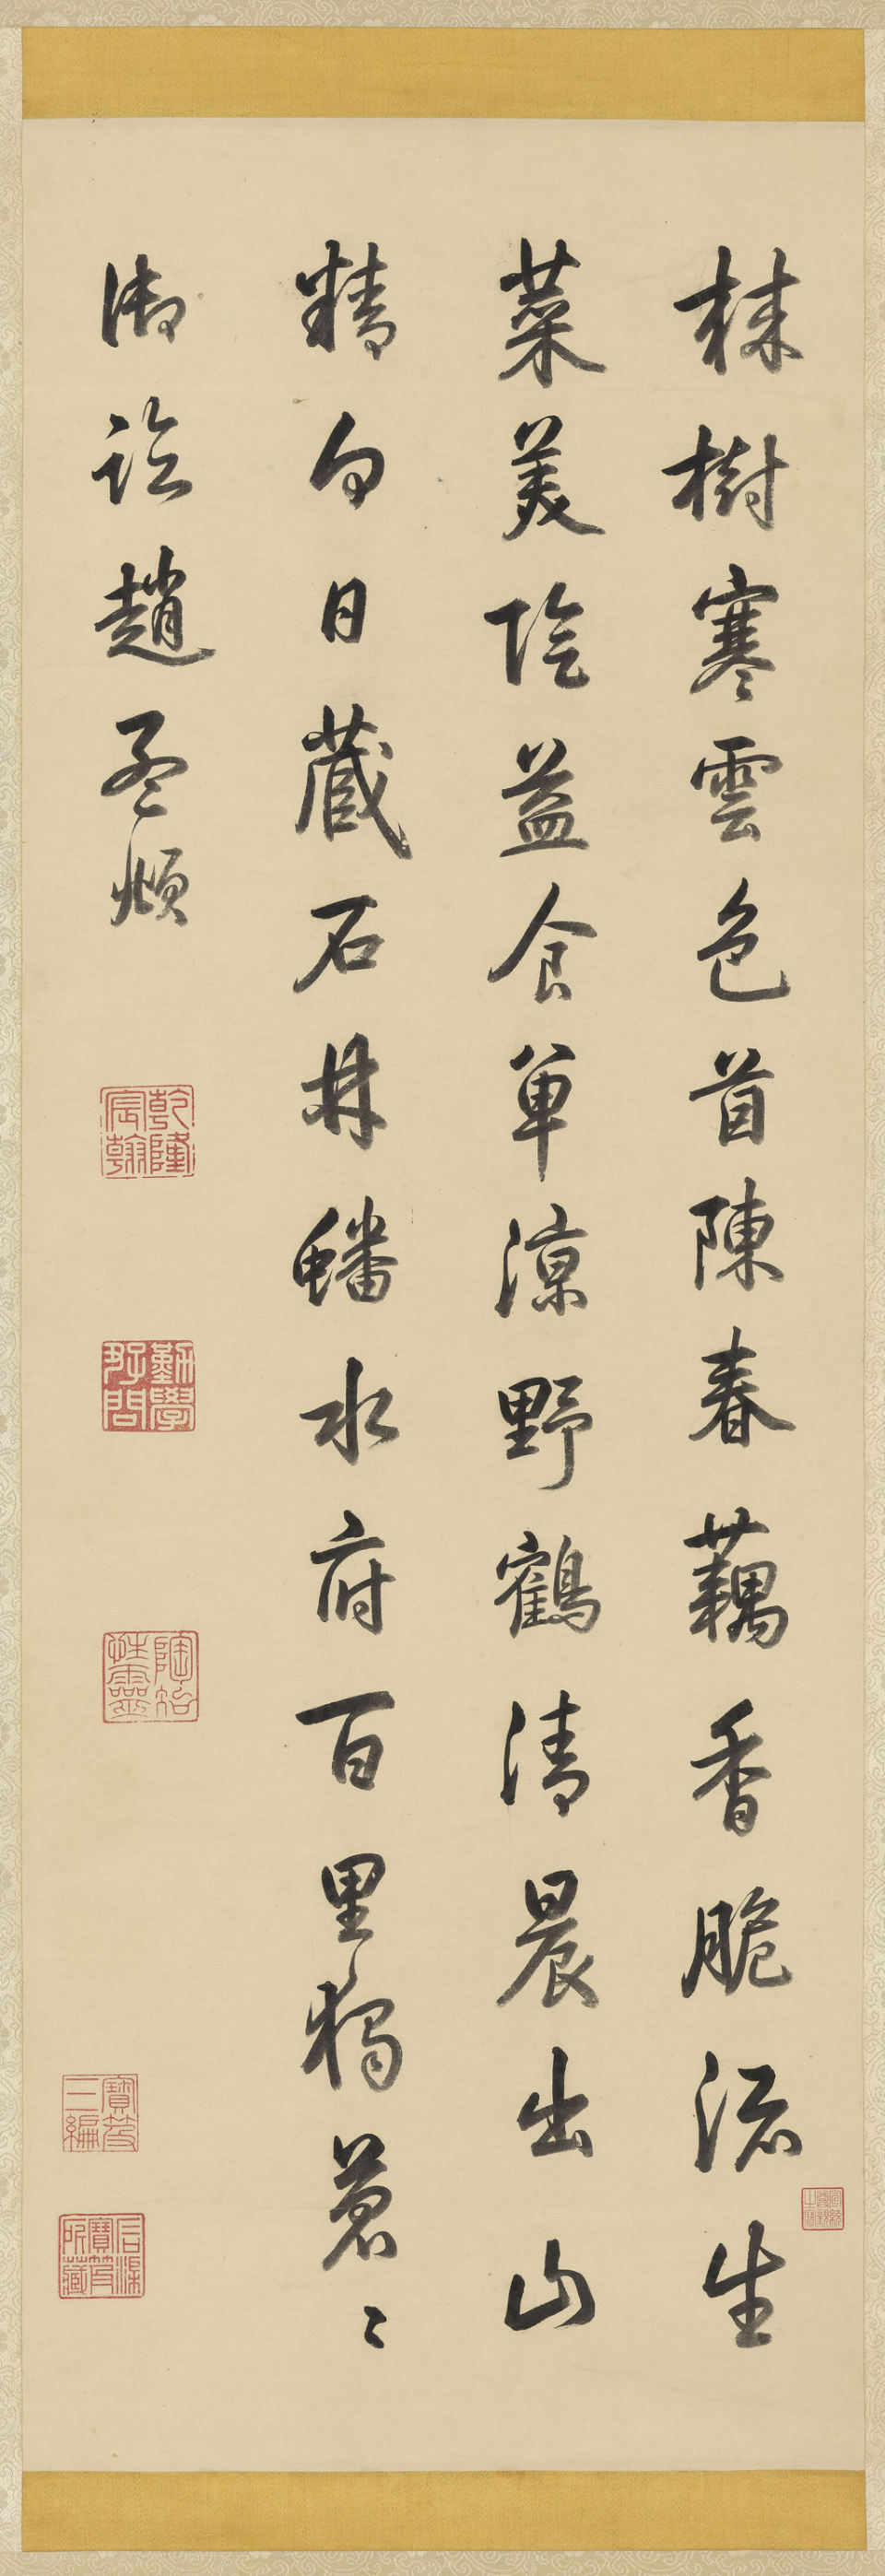 棘樹寒雲色茵陳春藕香脆添生
菜美陰益食單涼野鶴清晨出山
精白日藏石林蟠水府百里獨蒼〻
御臨趙孟頫
乾隆宸翰
勤學好問
陶冶性靈
寶笈三編
石渠寶笈所藏